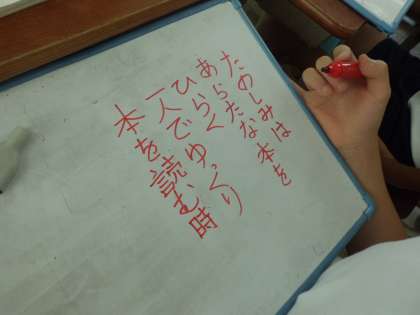 たのしみは本を
あらたな
ひらく
一人でゆっくり
本を読む時